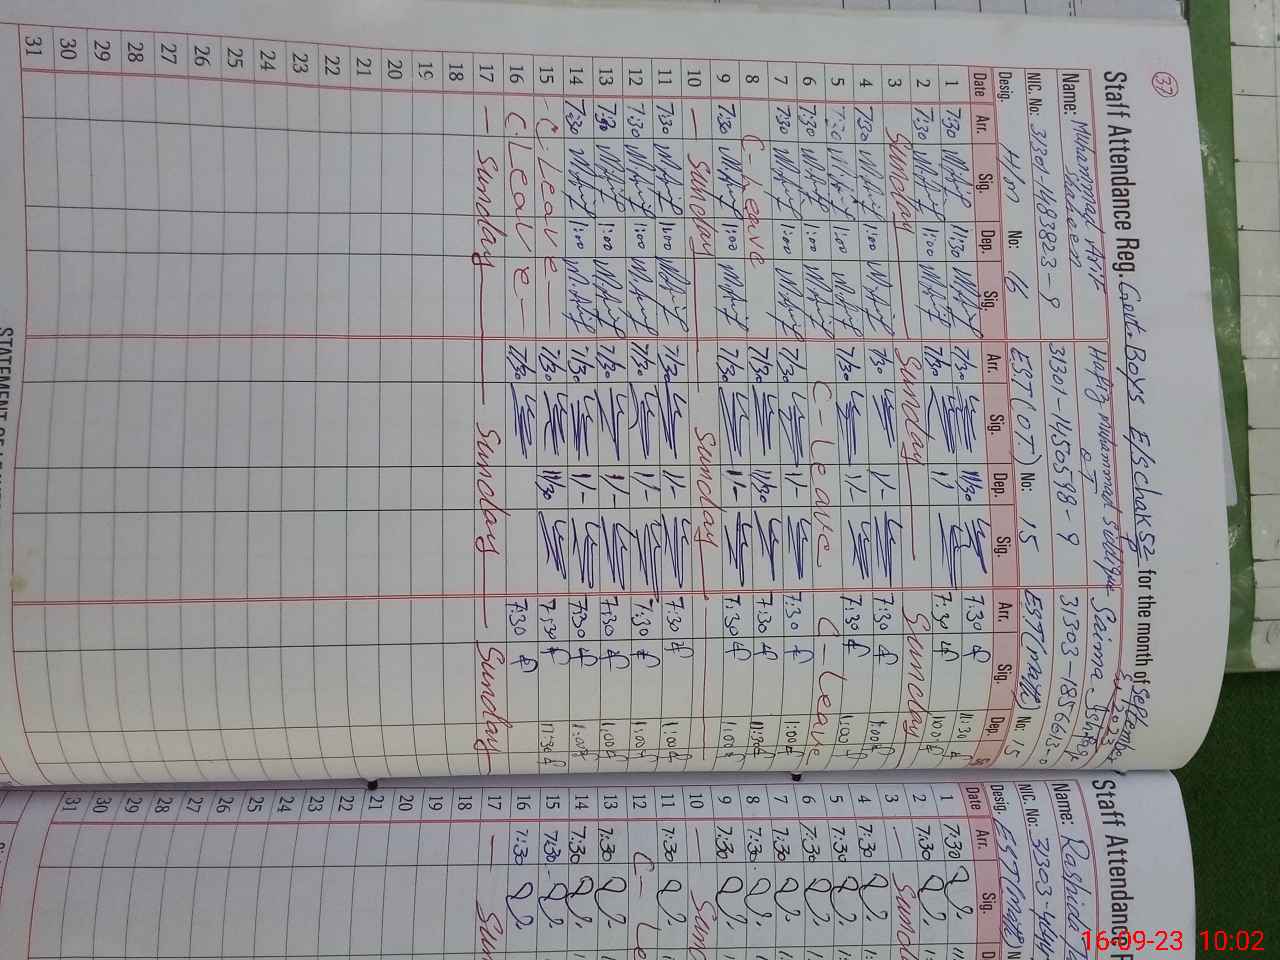 37
Staff Attendance Reg. Govt. Boys E/S chak 52 for the month of September 2023
Name: Muhammad Arif Shaheen Hafiz Muhammad Siddique OT Saima
NIC. No: 31301-1483823-9 31301-1450598-9 31303-1856613-0
Desig. H/m No: 16 EST (O.T) No: 15 EST(math) No: 15
Date Arr. Sig. Dep. Sig. Arr. Sig. Dep. Sig. Arr. Sig. Dep.
1 7:30 11:30 7/30 11/30 7:30 11:30
2 7:30 1:00 7/30 1/ 7:30 1:00
3 Sunday Sunday Sunday
4 7:30 1:00 7/30 1/- 7:30 1:00
5 7:30 1:00 7/30 1/- 7:30 1:00
6 7:30 1:00 C-Leave C-Leave
7 7:30 1:00 7/30 1/- 7:30 1:00
8 C-Leave 7/30 11/30 7:30 11:30
9 7:30 1:00 7/30 1/- 7:30 1:00
10 — Sunday — Sunday —
11 7:30 1:00 7/30 1/- 7:30 1:00
12 7:30 1:00 7/30 1/- 7:30 1:00
13 7:30 1:00 7/30 1/- 7:30 1:00
14 7:30 1:00 7/30 1/- 7:30 1:00
15 - C. Leave - 7/30 11/30 7:30 11:30
16 C. Leave - 7/30 7:30
17 — Sunday — Sunday — Sunday
18
19
20
21
22
23
24
25
26
27
28
29
30
31
Staff Attendance
Name: Rashida
NIC. No: 31303-
Desig. EST(math)
Date Arr. Sig.
1 7:30
2 7:30
3 —
4 7:30
5 7:30
6 7:30
7 7:30
8 7:30
9 7:30
10 —
11 7:30
12 C-
13 7:30
14 7:30
15 7:30
16 7:30
17 —
18
19
20
21
22
23
24
25
26
27
28
29
30
31
16-09-23 10:02